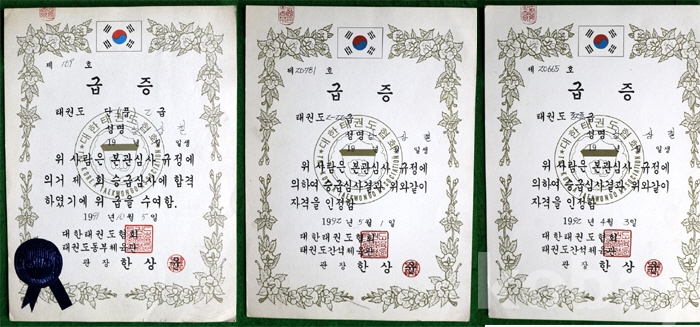 제 109 호
급 증
태권도 급
성명
19 년 월 일생
위 사람은 본관심사 규정에
의거 제 회 승급심사에 합격
하였기에 위 급을 수여함.
1991년 10월 5일
대한태권도협회
태권도동부체육관
관 장 한 상
제 20781 호
급 증
태권도 급
성명
19 년 월 일생
위 사람은 본관심사 규정에
의하여 승급심사결과 위와같이
자격을 인정함
1992년 5월 1일
대한태권도협회
태권도간석체육관
관 장 한 상
제 20665 호
급 증
태권도 급
성명
19 년 월 일생
위 사람은 본관심사 규정에
의하여 승급심사결과 위와같이
자격을 인정함
1992년 4월 3일
대한태권도협회
태권도간석체육관
관 장 한 상